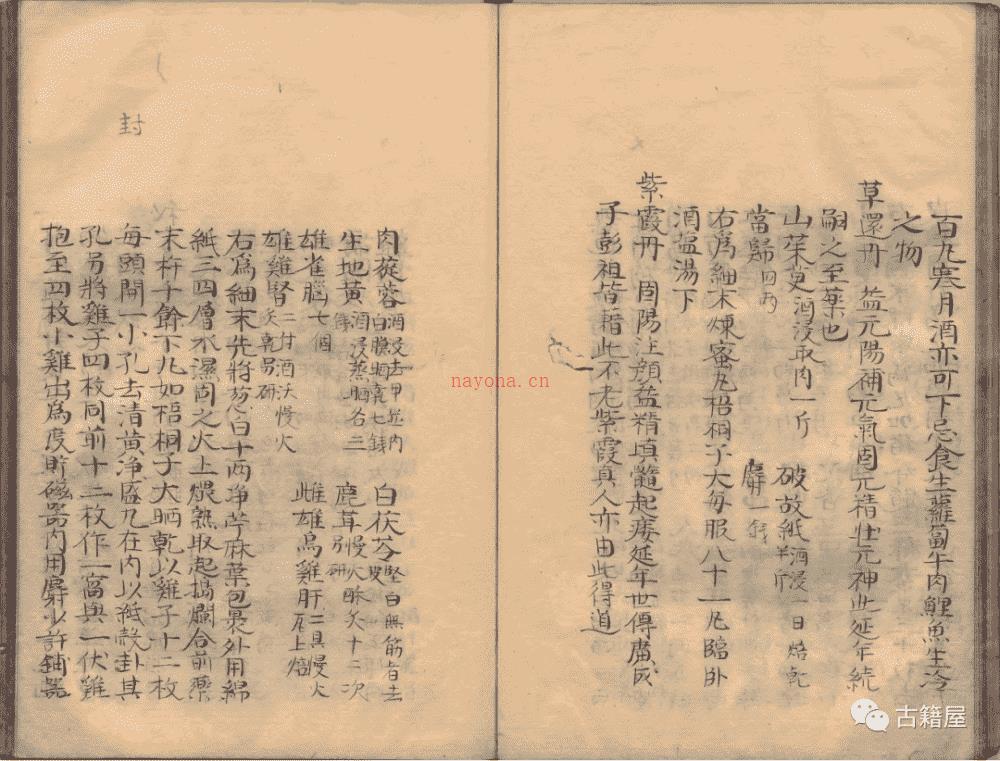 百丸寒月酒亦可下忌食生蘿蔔牛肉鯉魚生冷
之物
草還丹 益元陽補元氣固元精壯元神此延年続
嗣之至藥也
山茱萸酒浸取肉一斤 破故紙酒浸一日焙乾半斤
當歸四両 麝一錢
右爲細末煉蜜丸梧桐子大每服八十一丸臨卧
酒盐湯下
紫霞丹 固陽注顔益精填髓起痿延年世傳廣成
子彭祖皆藉此不老紫霞真人亦由此得道
肉蓯蓉酒浸去甲並内白膜晒乾七錢 白茯苓堅白無筋者去皮
生地黄酒浸蒸晒各三錢 鹿茸慢火酥炙十二次另研
雄雀腦七個
雄雞腎二付酒沃慢火炙乾另研 雌雄烏雞肝二具慢火瓦上焙
右爲細末先將葱白十両净苧麻葉包裹外用綿
紙三四層水濕固之火上煨熟取起搗爛合前藥
末杵千餘下丸如梧桐子大晒乾以雞子十二枚
每頭開一小孔去清黄净盛丸在内以紙殼卦其
孔另將雞子四枚同前十二枚作一窩與一伏雞
抱至四枚小雞出爲度貯磁器内用麝少許鋪器
封
nayona.cn
古籍屋